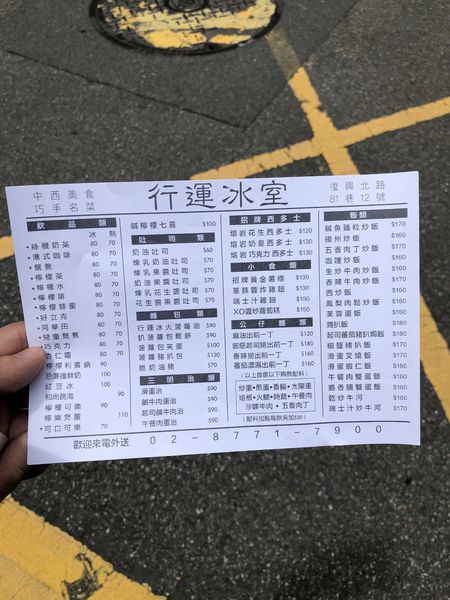 中西美食
巧手名菜
行運冰室
復興北路
81巷12號
飲品類
冰 熱
•絲襪奶茶 80 70
•港式咖啡 80 70
•鴛鴦 80 70
•檸檬茶 80 70
•檸檬水 80 70
•檸檬啡 80 70
•檸檬蜂蜜 80 70
•好立克 80 70
•阿華田 80 70
•兒童鴛鴦 80 70
•杏仁霜 80 70
檸檬利賓納 90
紅豆冰 100
和尚跳海
檸檬可樂 90
檸樂煲薑 110
•可口可樂 70
鹹檸檬七喜 $100
吐司類
奶油吐司 $60
煉乳奶油吐司 $70
奶油果醬吐司 $70
煉乳果醬吐司 $70
煉乳花生醬吐司 $70
花生果醬吐司 $70
麵包類
行運冰火菠蘿油 $90
扒菠蘿包鬆餅 $90
菠蘿包夾蛋 $100
菠蘿豬扒包 $120
脆奶油豬 $70
三明治類
滑蛋治
鹹牛肉蛋治
起司鹹牛肉治
午餐肉蛋治
招牌西多士
熔岩花生西多士 $120
熔岩奶皇西多士 $130
熔岩巧克力西多士 $130
小食類
招牌黃金薯條 $100
薑蒜蓉炸雞翅 $150
瑞士汁雞翅 $150
XO醬炒蘿蔔糕 $150
公仔麵類
麻油出前一丁 $80
香辣撈出前一丁 $160
蕃茄濃湯出前一丁 $160
炒蛋•煎蛋•香腸•太陽蛋
培根•火腿•時蔬•午餐肉
沙嗲牛肉•五香肉丁
飯類
鹹魚雞粒炒飯 $170
揚州炒飯 $160
五香肉丁炒飯 $160
咖哩炒飯 $160
生炒牛肉炒飯 $160
香辣牛肉炒飯 $160
西炒飯 $160
鳳梨肉鬆炒飯 $160
芙蓉蛋飯
雜扒飯
起司蕃茄豬扒焗飯 $180
椒鹽豬扒炒飯 $170
滑蛋叉燒飯 $160
滑蛋蝦仁飯 $160
午餐肉雙蛋飯 $160
脆香腸雙蛋飯 $160
乾炒牛河 $160
瑞士汁炒牛河 $170
歡迎來電外送 02-8771-7900